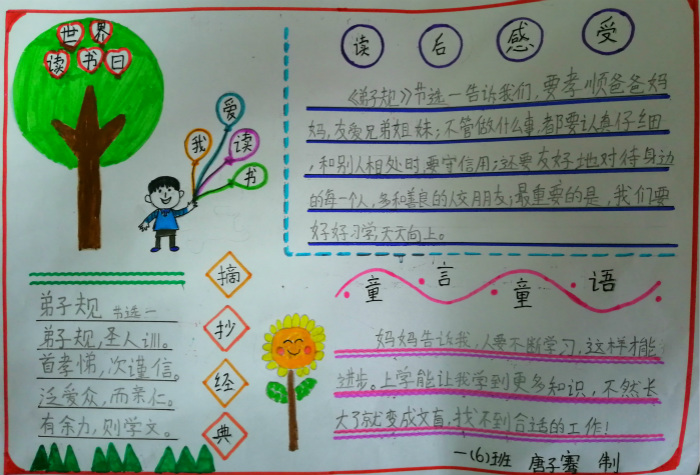 世界
读书日
我爱读书
读后感受
《弟子规》节选一告诉我们,要孝顺爸爸妈
妈,友爱兄弟姐妹;不管做什么事,都要认真仔细
,和别人相处时,要守信用;还要友好地对待身边
的每一个人,多和善良的人交朋友;最重要的是,我们要
好好习学,天天向上。
弟子规 节选一
弟子规,圣人训。
首孝悌,次谨信。
泛爱众,而亲仁。
有余力,则学文。
摘
抄
经
典
童言童语
妈妈告诉我,人要不断学习,这样才能
进步。上学能让我学到更多知识,不然长
大了就变成文盲,找不到合适的工作!
一(6)班 唐子骞 制